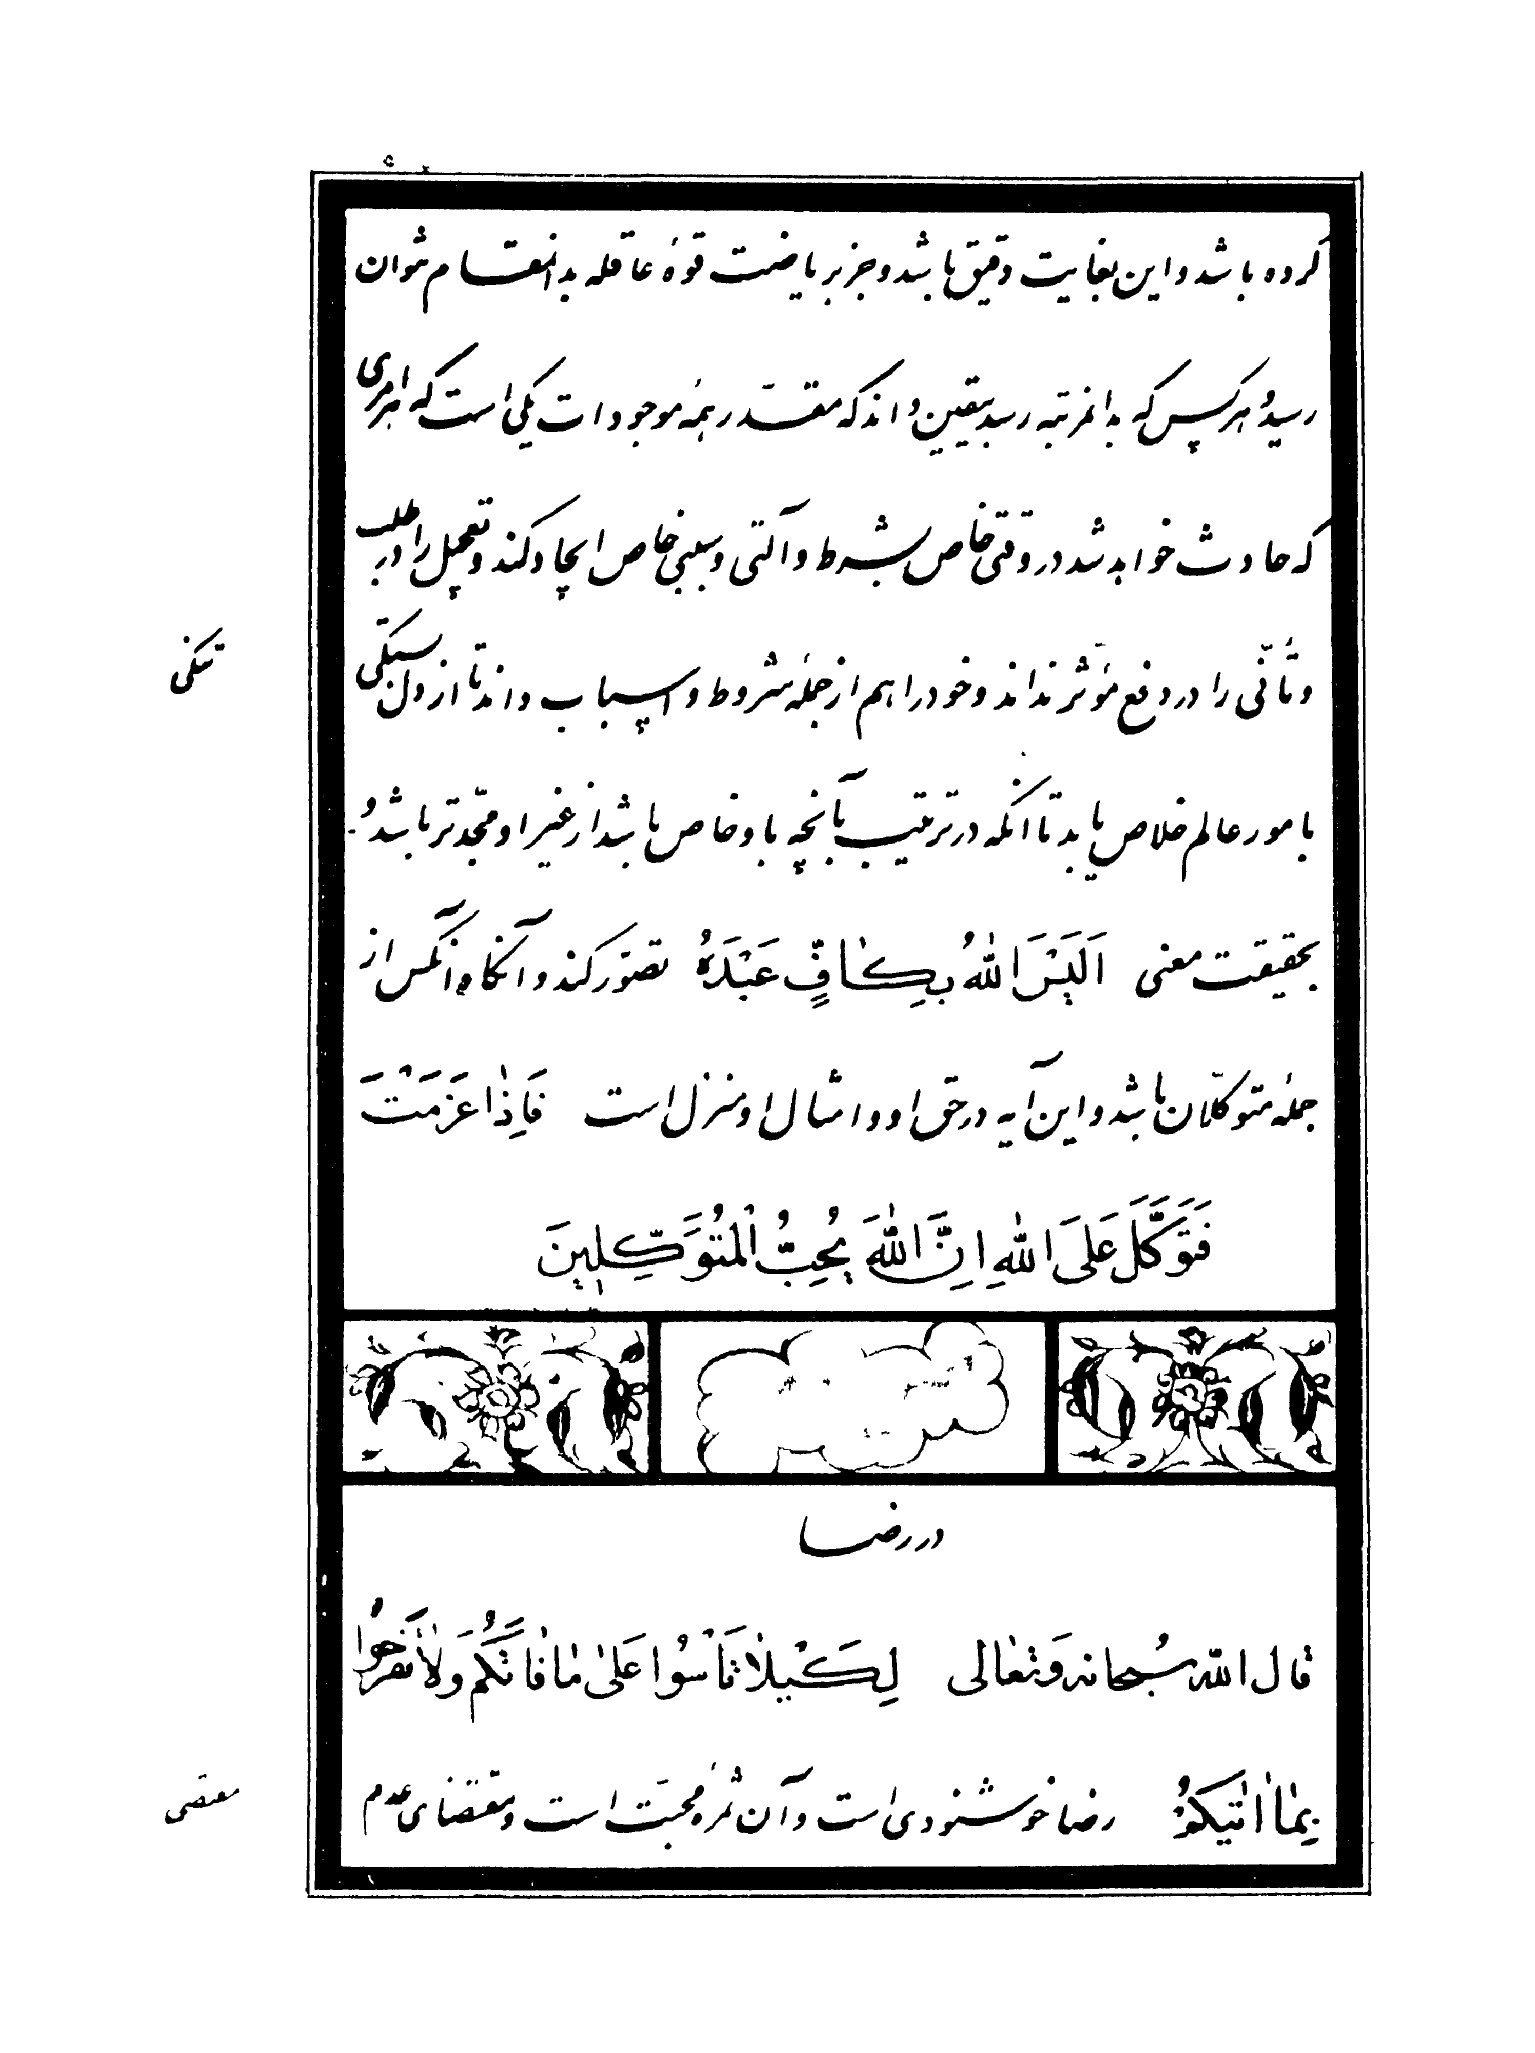 کرده باشد و این بغایت دقیق باشد و جز بریاضت قوهٔ عاقله بدانمقام نتوان
رسید و هر کس که بدانمرتبه رسد بیقین داند که مقدّر همهٔ موجودات یکی است که هر امری
که حادث خواهد شد در وقتی خاص بشرط و آلتی و سببی خاص ایجاد کند و تعجیل را در طلب
و تأنّی را در دفع مؤثّر نداند و خود را هم از جملهٔ شروط و اسباب داند تا از دل بستگی
تنگی
بامور عالم خلاص یابد تا آنکه در ترتیب بآنچه باو خاص باشد از غیر او مجّدتر باشد و
بحقیقت معنی اَلَیْسَ اللهُ بِکافٍ عَبْدَهُ تصوّر کند و آنگاه آنکس از
جملهٔ متوکّلان باشد و این آیه در حق او و امثال او منزل است فَاِذا عَزَمْتَ
فَتَوَکَّلْ عَلَی اللهِ اِنَّ اللهَ یُحِبُّ الْمُتَوَکِّلینَ
در رضا
قال الله سُبحانه وَتعالی لِکَیْلا تَأْسَوُا عَلی ما فاتَکُمْ وَلا تَفْرَحُوا
بِما اتیکُمْ رضا خوشنودی است و آن ثمرهٔ محبّت است و مقتضای عدم
مقتضی